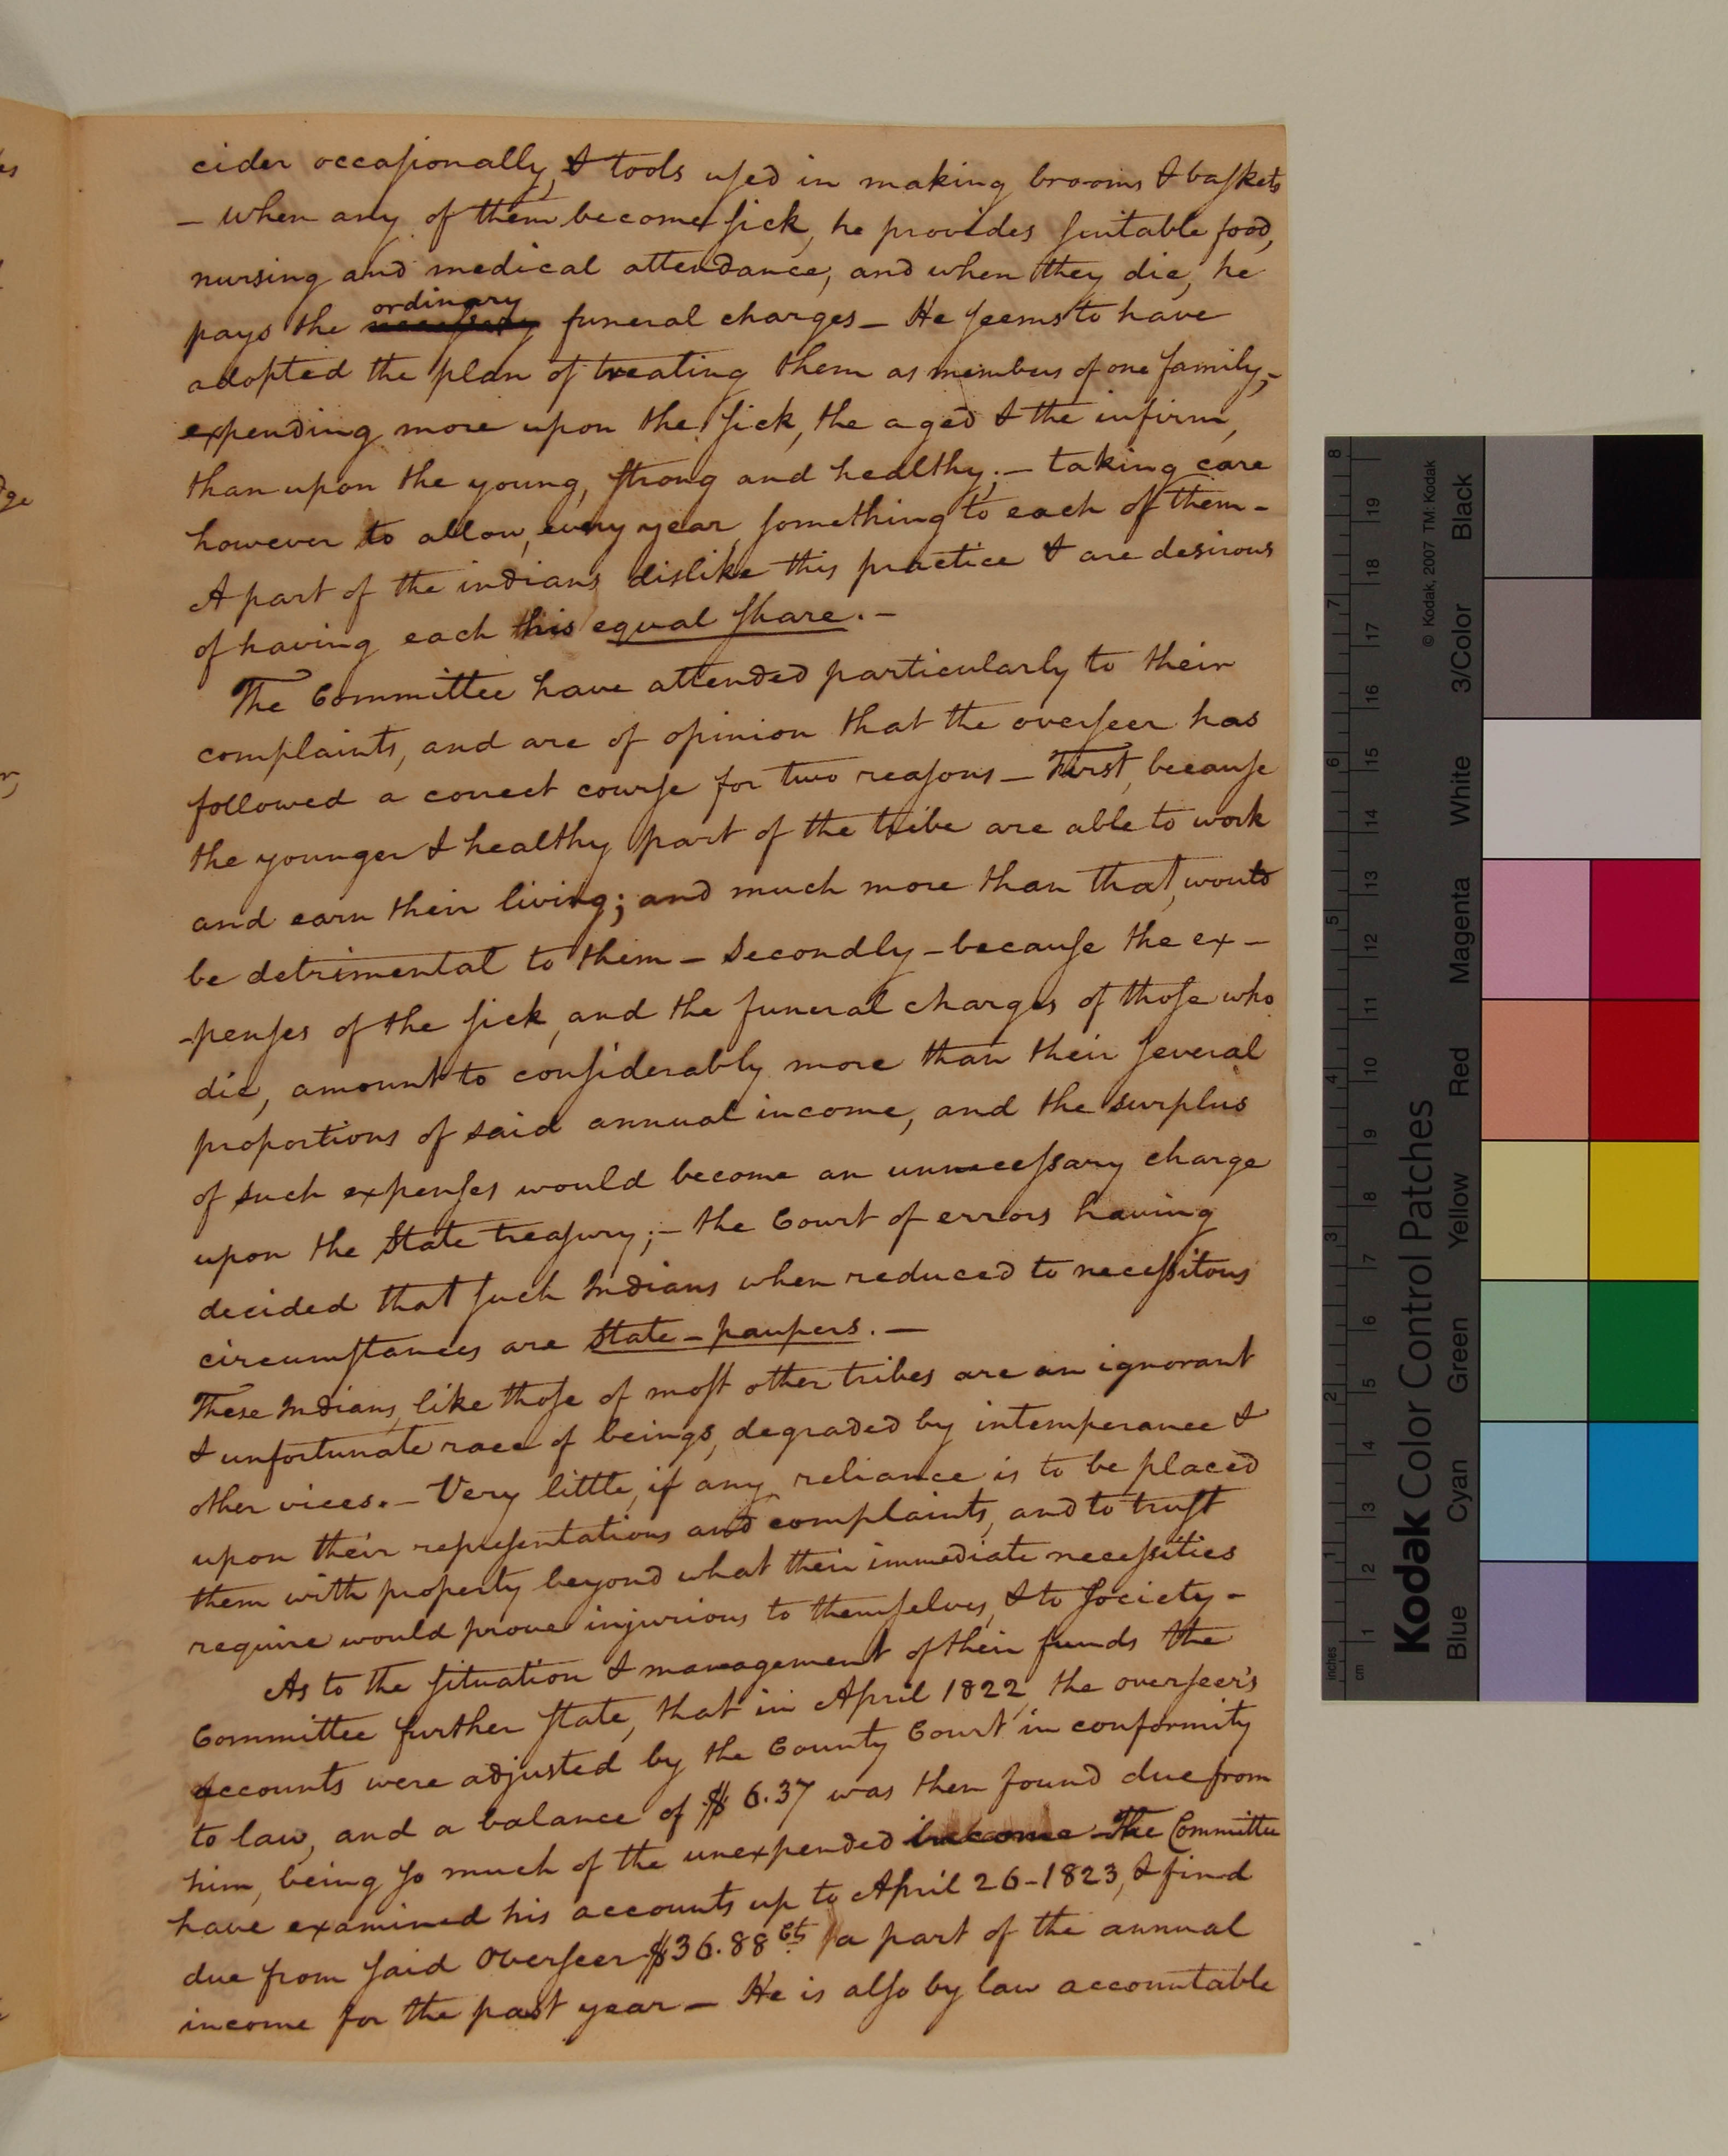 cider occasionally, & tools used in making brooms & baskets
– when any of them become sick, he provides suitable food,
nursing and medical attendance, and when they die, he
ordinary
pays the necessary funeral charges – He seems to have
adopted the plan of treating them as members of one family, –
expending more upon the sick, the aged & the infirm,
than upon the young, strong and healthy; – taking care
however to allow, every year, something to each of them –
A part of the indians dislike this practice & are desirous
of having each his equal share. –
The Committee have attended particularly to their
complaints, and are of opinion that the overseer has
followed a correct course for two reasons – First, because
the younger & healthy part of the tribe are able to work
and earn their living; and much more than that, would
be detrimental to them – Secondly – because the ex –
-penses of the sick, and the funeral charges of those who
die, amount to considerably more than their several
proportions of said annual income, and the surplus
of such expenses would become an unnecessary charge
upon the State treasury; – the Court of errors having
decided that such Indians when reduced to necessitous
circumstances are State – paupers. –
These Indians, like those of most other tribes are an ignorant
& unfortunate race of beings, degraded by intemperance &
other vices. – Very little, if any reliance is to be placed
upon their representations and complaints, and to trust
them with property beyond what their immediate necessities
require would prove injurious to themselves, & to Society –
As to the situation & management of their funds the
Committee further state, that in April 1822, the overseer's
accounts were adjusted by the County Court in conformity
to law, and a balance of $ 6.37 was then found due from
him, being so much of the unexpended income – The Committee
have examined his accounts up to April 26 – 1823, & find
due from said Overseer $36.88 Cts a part of the annual
income for the past year – He is also by law accountable
es
dge
r,
Kodak Color Control Patches
© Kodak, 2007 TM: Kodak
Blue Cyan Green Yellow Red Magenta White 3/Color Black
inches 1 2 3 4 5 6 7 8
cm 1 2 3 4 5 6 7 8 9 10 11 12 13 14 15 16 17 18 19